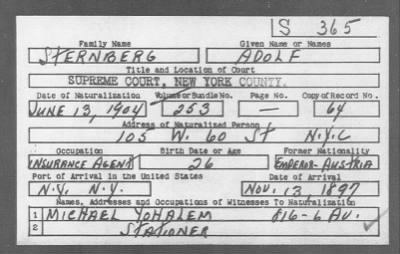 S 365
Family Name Given Name or Names
STERNBERG ADOLF
Title and Location of Court
SUPREME COURT, NEW YORK COUNTY.
Date of Naturalization Volume or Bundle No. Page No. Copy of Record No.
JUNE 13, 1904 253 — 64
Address of Naturalized Person
105 W. 60 ST N.Y.C
Occupation Birth Date or Age Former Nationality
INSURANCE AGENT 26 EMPEROR-AUSTRIA
Port of Arrival in the United States Date of Arrival
N.Y. N.Y. NOV. 13, 1897
Names, Addresses and Occupations of Witnesses To Naturalization
1 MICHAEL YOHALEM 816-6 AV.
2 STATIONER